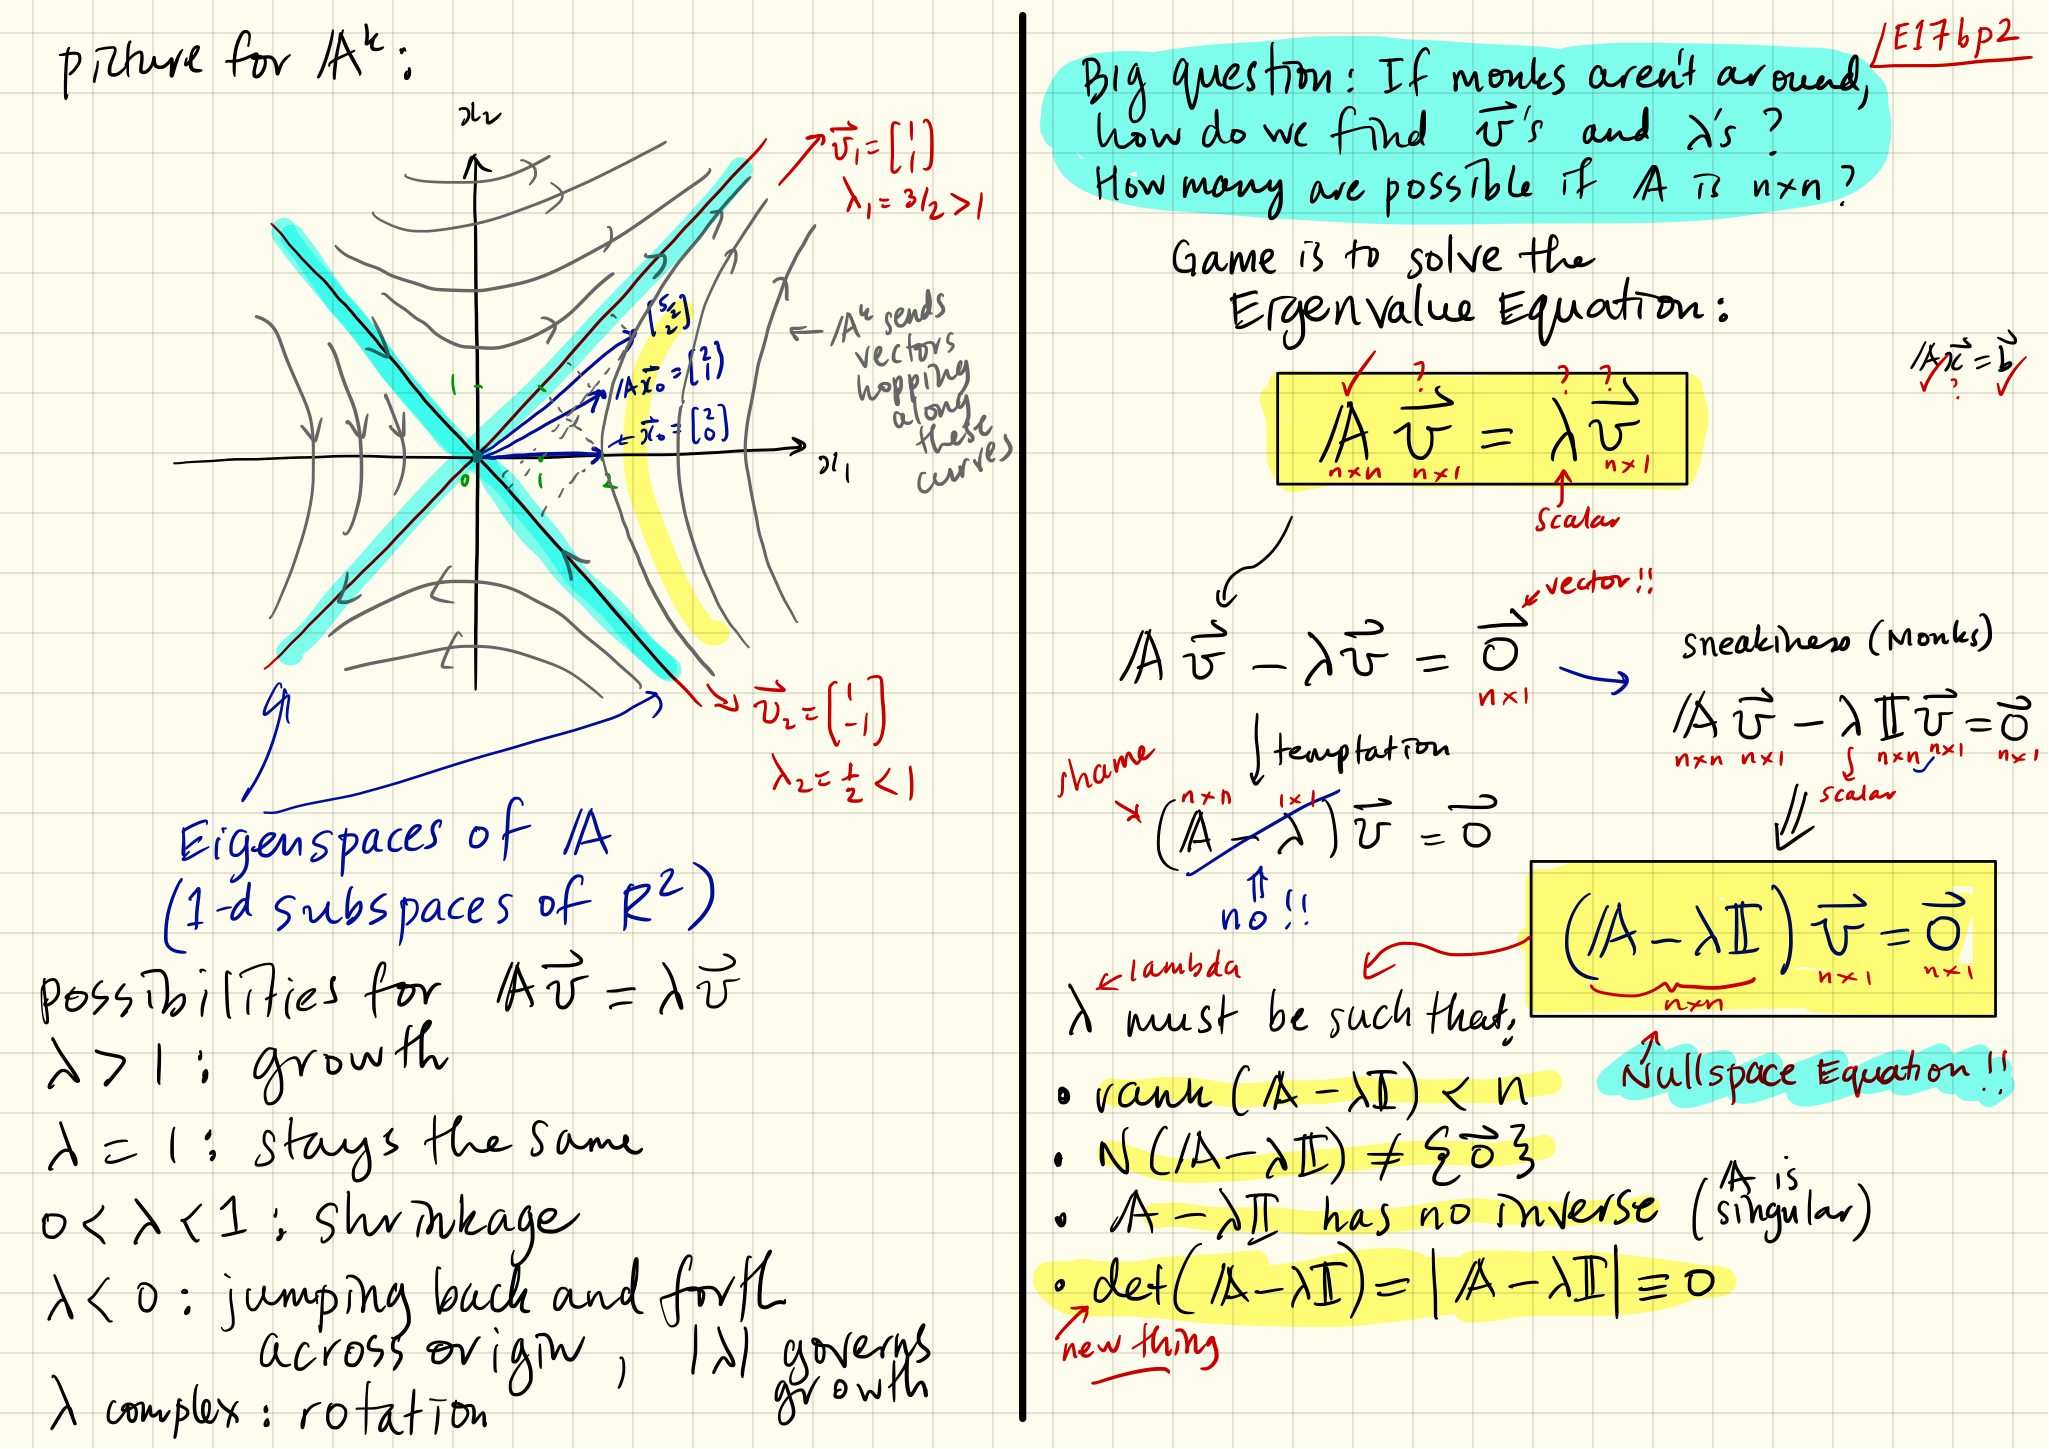 picture for 𝔸ᵏ:
x₂
v⃗₁ = [1 1]
λ₁ = 3/2 > 1
[5/2 2]
𝔸x⃗₀ = [2 1]
← x⃗₀ = [2 0]
1
0
1
2
x₁
← 𝔸ᵏ sends
vectors
hopping
along
these
curves
v⃗₂ = [1 -1]
λ₂ = 1/2 < 1
Eigenspaces of 𝔸
(1-d subspaces of R²)
possibilities for 𝔸v⃗ = λv⃗
λ > 1 : growth
λ = 1 : stays the same
0 < λ < 1 : shrinkage
λ < 0 : jumping back and forth
across origin, |λ| governs
growth
λ complex : rotation
E17bp2
Big question: If monks aren't around,
how do we find v⃗'s and λ's ?
How many are possible if 𝔸 is n×n ?
Game is to solve the
Eigenvalue Equation:
𝔸x⃗ = b⃗
✓ ? ✓
✓ ? ? ?
𝔸 v⃗ = λ v⃗
n×n n×1 n×1
scalar
vector!!
𝔸 v⃗ − λv⃗ = 0⃗
n×1
sneakiness (Monks)
𝔸 v⃗ − λ 𝕀 v⃗ = 0⃗
n×n n×1 n×n n×1 n×1
scalar
temptation
shame
n×n 1×1
(𝔸 − λ) v⃗ = 0⃗
no!!
(𝔸 − λ𝕀) v⃗ = 0⃗
n×n n×1 n×1
Nullspace Equation!!
← lambda
λ must be such that:
• rank (𝔸 − λ𝕀) < n
• N(𝔸 − λ𝕀) ≠ {0⃗}
• 𝔸 − λ𝕀 has no inverse (𝔸 is
singular)
• det(𝔸 − λ𝕀) = |𝔸 − λ𝕀| ≡ 0
new thing